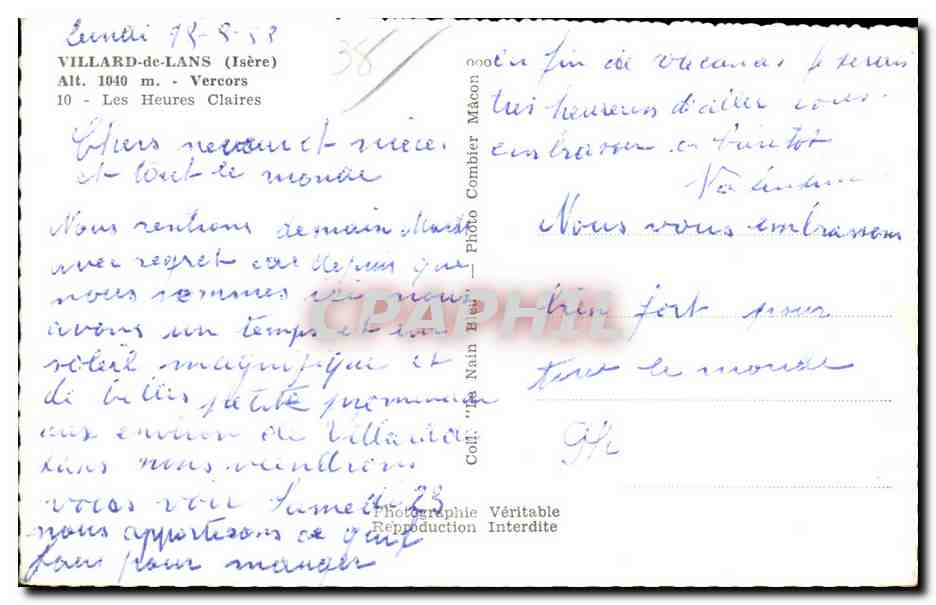 Lundi 18-8-58
VILLARD-de-LANS (Isère)
Alt. 1040 m. - Vercors
10 - Les Heures Claires
38
Chers neveu et nièce
et tout le monde
Nous rentrons demain Mardi
avec regret car depuis que
nous sommes ici nous
avons un temps et un
soleil magnifique et
de belles petite promenade
aux environ de Villard de
Lans nous viendrons
vous voir Samedi 23
nous apporterons ce qu'il
faut pour manger
Coll. "Le Nain Bleu". — Photo Combier Mâcon
Photographie Véritable
Reproduction Interdite
en fin de vacances je serais
très heureuse d'aller vous
embrasser a bientot
Nous vous embrassons
bien fort pour
tout le monde
CPAPHIL